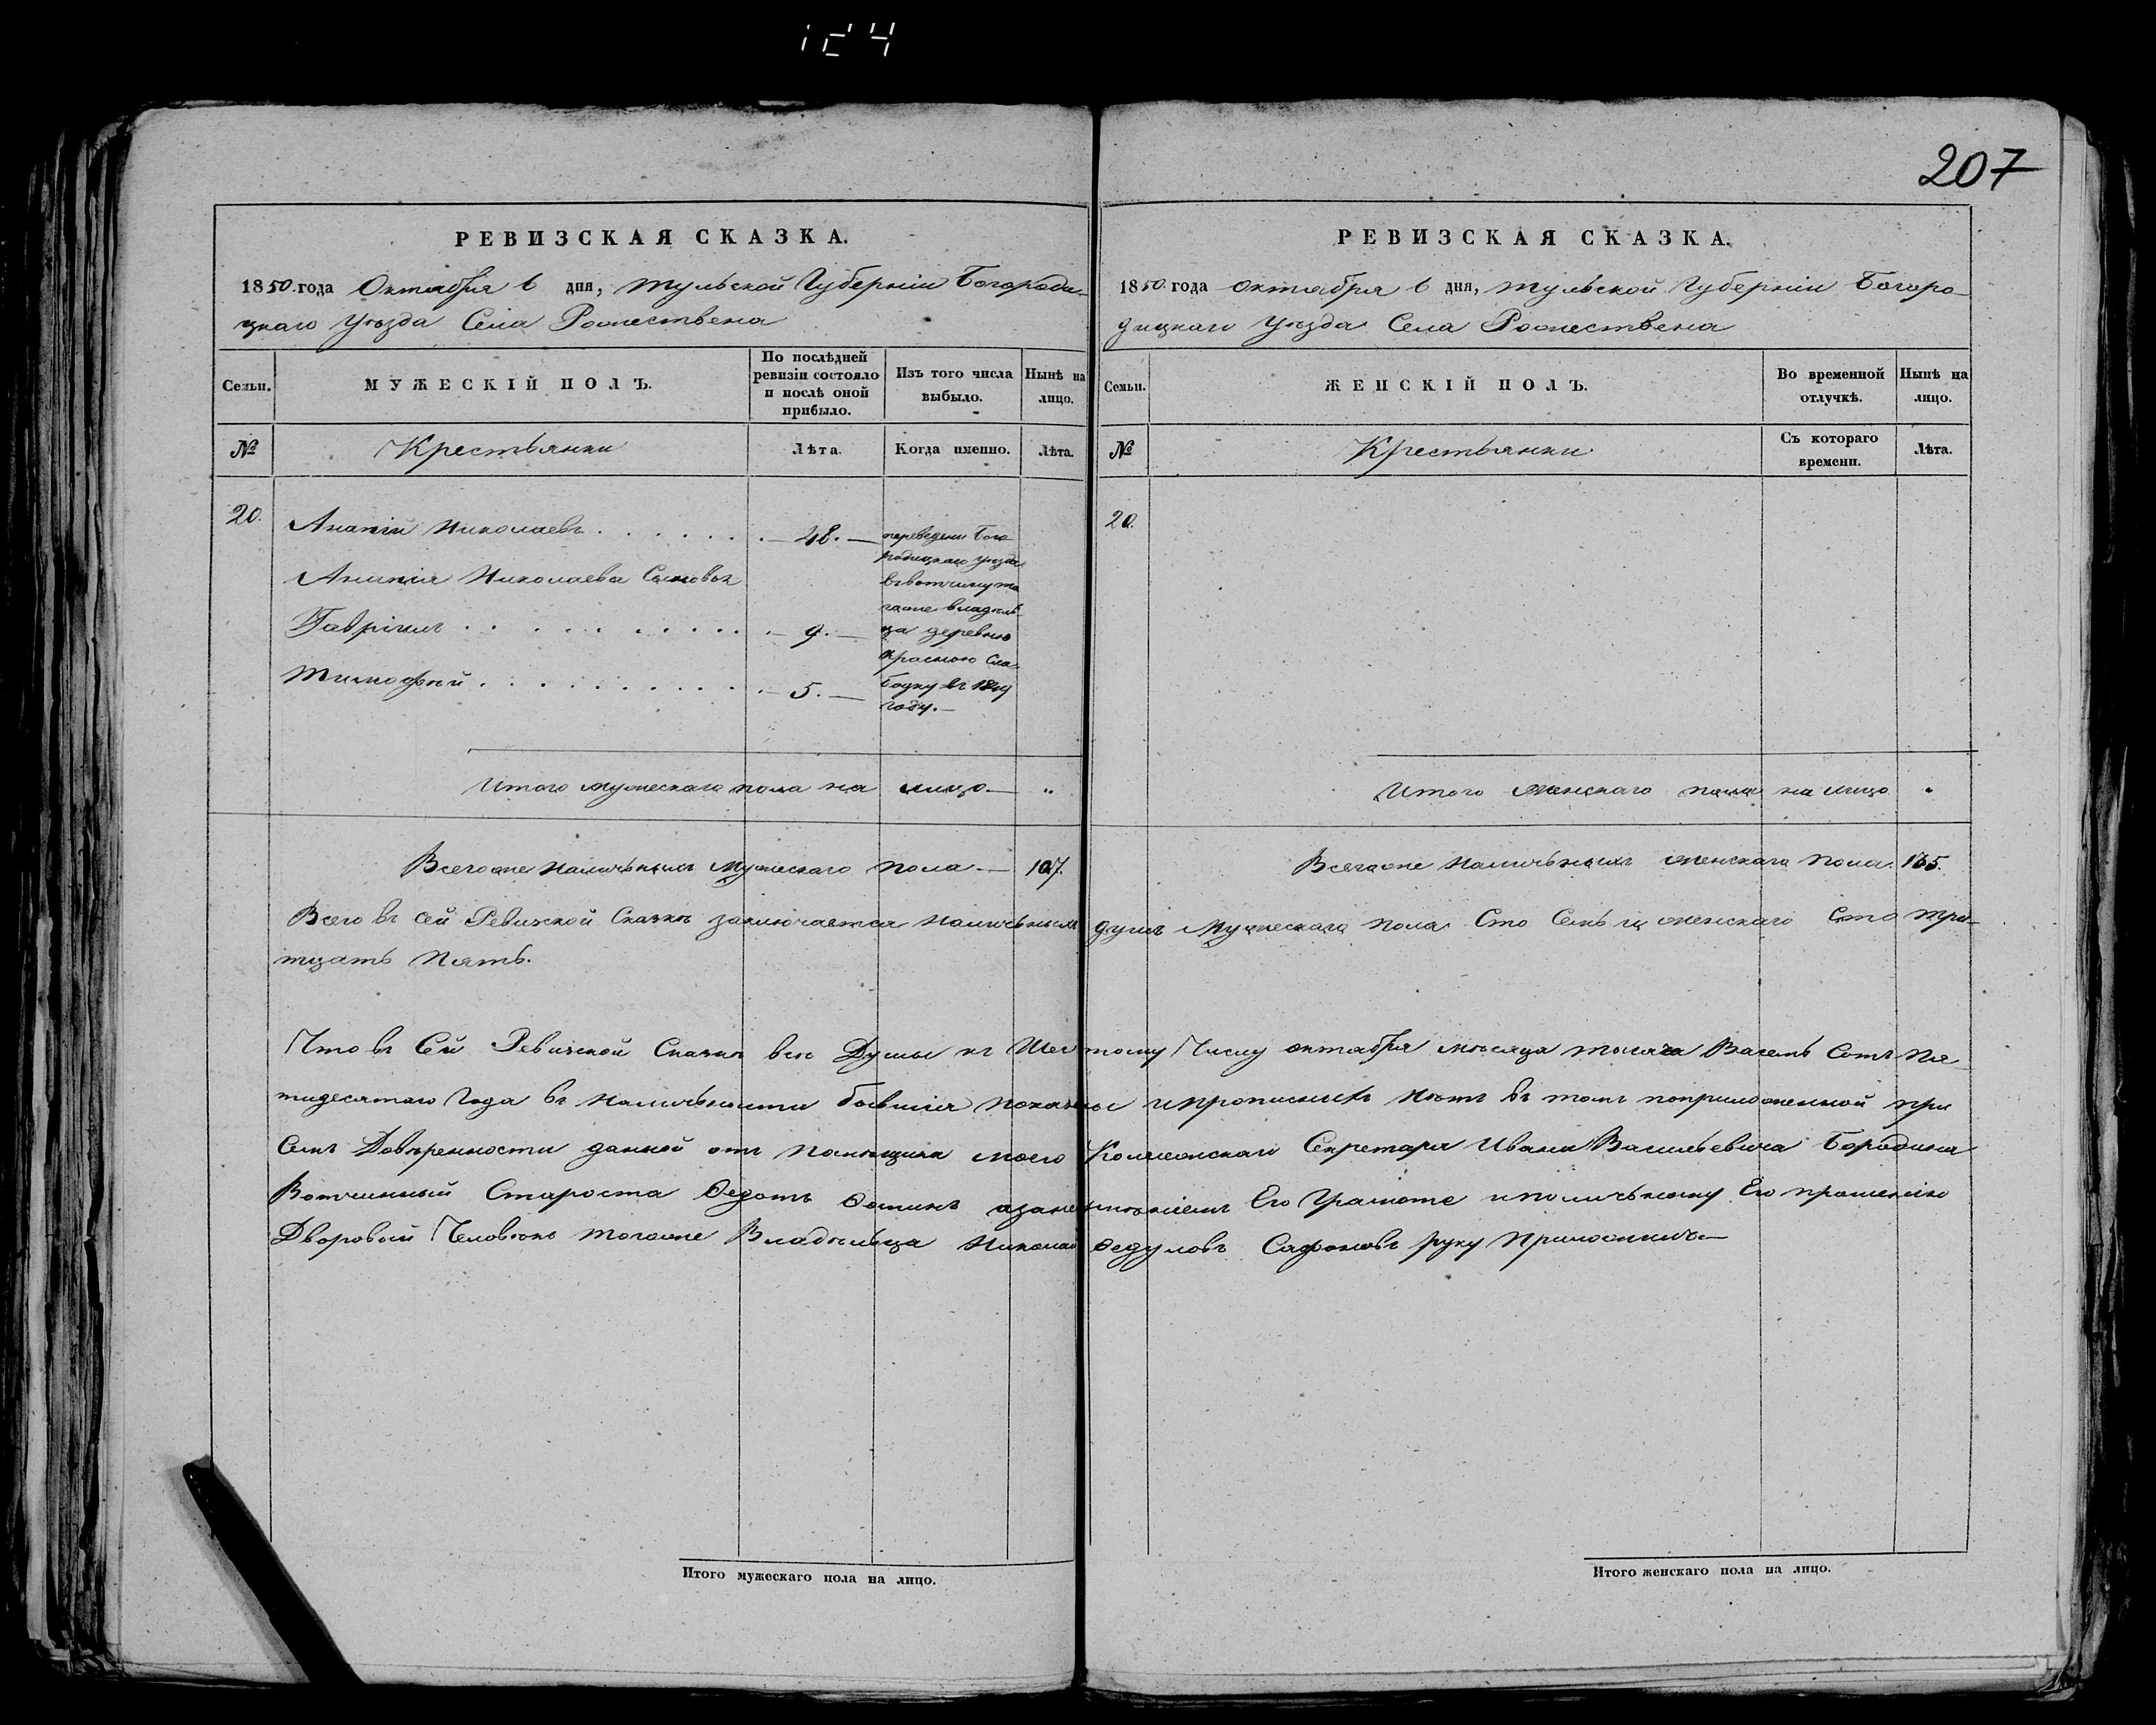 207
РЕВИЗСКАЯ СКАЗКА.
1850 года Октября 6 дня, Тульской Губерніи Богороди-
цкаго Уѣзда Села Рожествена
Семьи.
МУЖЕСКІЙ ПОЛЪ.
По послѣдней ревизіи состояло и послѣ оной прибыло.
Изъ того числа выбыло.
Нынѣ на лицо.
№
Крестьянки
Лѣта.
Когда именно.
Лѣта.
20.
Ананій Николаевъ . . . . . . . — 48. —
Ананія Николаева Сыновья
Гаврілъ . . . . . . . . . . — 9. —
Тимофѣй . . . . . . . . . . — 5. —
переведены Бого
родицкаго уѣзда
въ вотчину то
гоже владѣль
ца деревню
Красною Сло
бодку въ 1849
году. —
Итого мужескаго пола на лицо. — „
Всегоже наличныхъ Мужескаго пола — 107.
РЕВИЗСКАЯ СКАЗКА.
1850 года Октября 6 дня, Тульской Губерніи Богоро-
дицкаго Уѣзда Села Рожествена
Семьи.
ЖЕНСКІЙ ПОЛЪ.
Во временной отлучкѣ.
Нынѣ на лицо.
№
Крестьянки
Съ котораго времени.
Лѣта.
20.
Итого женскаго пола на лицо „
Всегоже наличьныхъ женскаго пола. 135.
Всего въ сей Ревизской Сказкѣ заключается наличьныхъ душъ Мужескаго пола Сто Семь и женскаго Сто три-
тцать Пять.
Что въ Сей Ревизской Сказкѣ всѣ Души къ Шестому Числу октября мѣсяца тысяча Васемь Сотъ Пя-
тидесятаго Года въ Наличьности бывшія показаны и прописныхъ нѣтъ въ томъ поприложенной при
Семъ Довѣренности данной отъ Помѣщика моего Коллежскаго Секретаря Ивана Васильевича Бородина
Вотчинный Староста Ѳедотъ Ѳоминъ азанеумѣніемъ Его Грамоте и поличьному Его прошенію
Дворовый Человѣкъ тогоже Владѣльца Николай Ѳедуловъ Сафоновъ руку Приложилъ —
Итого мужескаго пола на лицо.
Итого женскаго пола на лицо.